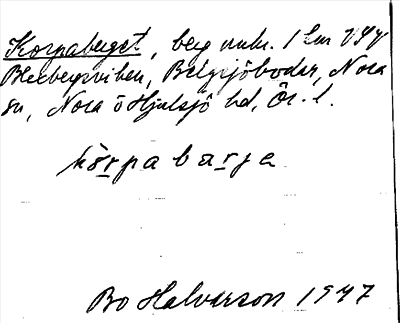 Korpaberget, berg omkr. 1 km VSV
Blexbergsviken, Bälgsjöbodar, Nora
sn, Nora o Hjulsjö hd, Ör. l.
kȯrpa barje
Bo Halvarson 1947